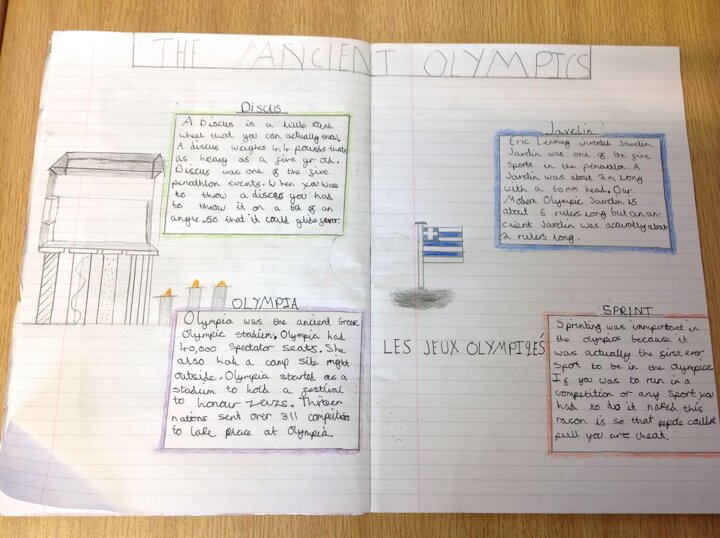 THE ANCIENT OLYMPICS
Discus
A Discus is a little kind
wheel that you can actually throw.
A discus weighes 4.4 pounds thats
as heavy as a five yr old.
Discus was one of the five
penathlon events. When you was
to throw a discus you had
to throw it on a bit of an
angle so that it could glide
OLYMPIA
Olympia was the ancient Greek
Olympic stadium. Olympia had
40,000 Spectator seats. She
also had a camp site right
outside. Olympia started as a
stadium to hold a festival
to honour Zeuzs. Thirteen
nations sent over 311 competitors
to take place at Olympia.
Javelin
Eric Lemming invented Javelin.
Javelin was one of the five
Sports in the penavlon. A
Javelin was about 2m Long
with a 60mm head. Our
Modern Olympic Javelin is
about 6 rulers Long but an an-
cient Javelin was actually about
2 rulers long.
LES JEUX OLYMPIQÉS
SPRINT
Sprinting was important in
the olympics because it
was actually the first ever
Sport to be in the Olympics.
If you was to run in a
competition or any Sport you
had to do it naked this
racon is so that pepole couldnt
pull you are cheat.